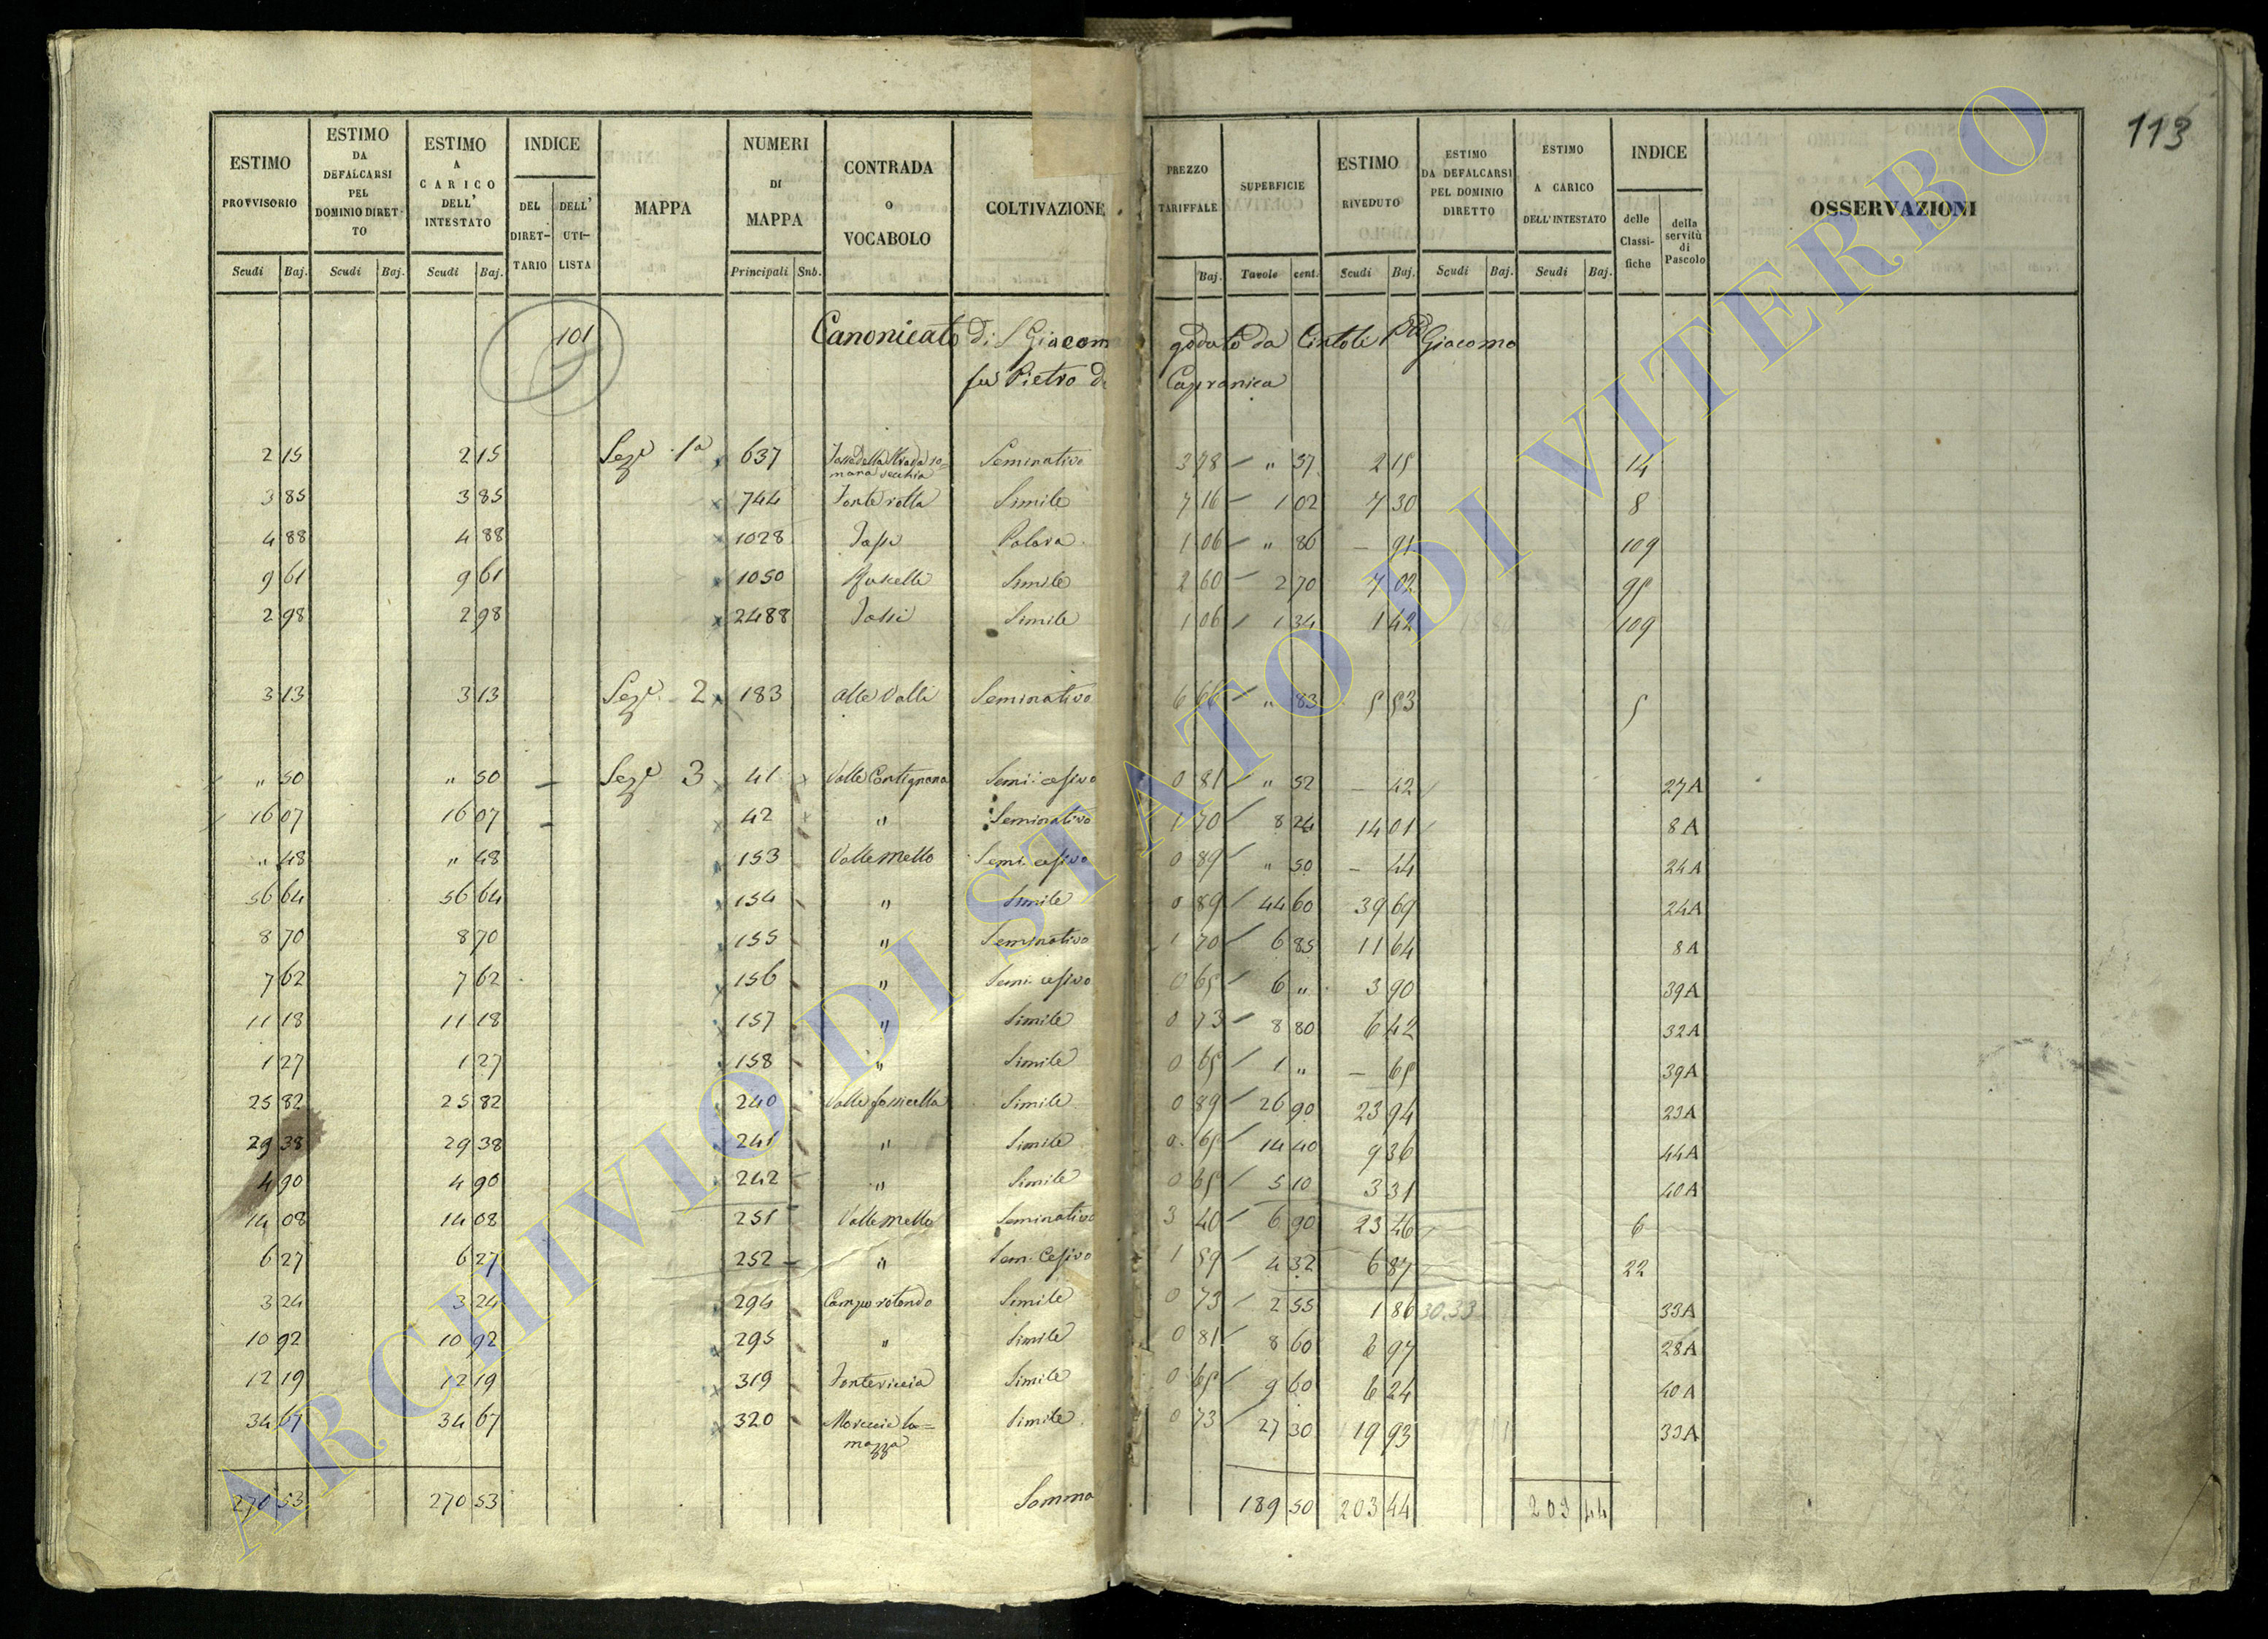 113
ESTIMO PROVVISORIO Scudi Baj.
ESTIMO DA DEFALCARSI PEL DOMINIO DIRET- TO Scudi Baj.
ESTIMO A CARICO DELL' INTESTATO Scudi Baj.
INDICE DEL DIRET- TARIO DELL' UTI- LISTA
MAPPA
NUMERI DI MAPPA Principali Sub.
CONTRADA O VOCABOLO
COLTIVAZIONE
PREZZO TARIFFALE Baj.
SUPERFICIE Tavole cent.
ESTIMO RIVEDUTO Scudi Baj.
ESTIMO DA DEFALCARSI PEL DOMINIO DIRETTO Scudi Baj.
ESTIMO A CARICO DELL'INTESTATO Scudi Baj.
INDICE delle Classi- fiche della servitù di Pascolo
OSSERVAZIONI
101 Canonicato di S Giacom goduto da Cintoli Giacomo
fu Pietro di Capranica
2 15 2 15 Sez.e 1a 637 Seminativo 3 78 " 57 2 15 14
3 85 3 85 744 Fonte rotta Simile 7 16 1 02 7 30 8
4 88 4 88 1028 Fossi 1 06 " 86 — 91 109
9 61 9 61 1050 Simile 2 60 2 70 7 02 95
2 98 2 98 2488 Fossi Simile 1 06 1 34 1 42 109
3 13 3 13 Sez.e 2 183 alle Valli Seminativo 6 66 " 83 5 53 5
" 50 " 50 — Sez.e 3 41 Valle Contignana Semi: cesivo 0 81 " 52 — 42 27A
16 07 16 07 — 42 " Seminativo 1 70 8 24 14 01 8A
" 48 " 48 153 Valle Mello Semi. cesivo 0 89 " 50 — 44 24A
56 64 56 64 154 " Simile 0 89 44 60 39 69 24A
8 70 8 70 155 " Seminativo 1 70 6 85 11 64 8A
7 62 7 62 156 " Semi. cesivo 0 65 6 " 3 90 39A
11 18 11 18 157 " Simile 0 73 8 80 6 42 32A
1 27 1 27 158 " Simile 0 65 1 " — 65 39A
25 82 25 82 240 Valle fossicella Simile 0 89 26 90 23 94 23A
29 38 29 38 241 " Simile 0 65 14 40 9 36 44A
4 90 4 90 242 " Simile 0 65 5 10 3 31 40A
14 08 14 08 251 Valle Mello Seminativo 3 40 6 90 23 46 6
6 27 6 27 252 " Sem. Cesivo 1 59 4 32 6 87 22
3 24 3 24 294 Campo rotondo Simile 0 73 2 55 1 86 30.33 33A
10 92 10 92 295 " Simile 0 81 8 60 6 97 28A
12 19 12 19 319 Simile 0 65 9 60 6 24 40A
34 67 34 67 320 Simile 0 73 27 30 19 93 33A
270 53 270 53 Somma 189 50 203 44 203 44
ARCHIVIO DI STATO DI VITERBO